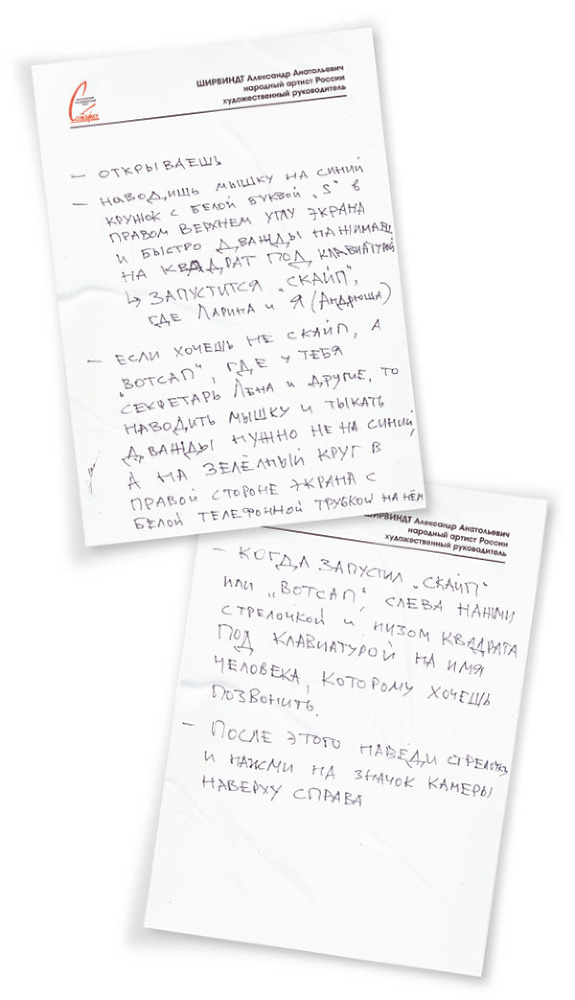 ШИРВИНДТ Александр Анатольевич
народный артист России
художественный руководитель
– ОТКРЫВАЕШЬ
– НАВОДИШЬ МЫШКУ НА СИНИЙ
КРУЖОК С БЕЛОЙ БУКВОЙ „S" В
ПРАВОМ ВЕРХНЕМ УГЛУ ЭКРАНА
И БЫСТРО ДВАЖДЫ НАЖИМАЕШЬ
НА КВАДРАТ ПОД КЛАВИАТУРОЙ
↳ ЗАПУСТИТСЯ „СКАЙП",
ГДЕ ЛАРИНА И Я (АНДРЮША)
– ЕСЛИ ХОЧЕШЬ НЕ СКАЙП, А
„ВОТСАП", ГДЕ У ТЕБЯ
СЕКРЕТАРЬ ЛЕНА И ДРУГИЕ, ТО
НАВОДИТЬ МЫШКУ И ТЫКАТЬ
ДВАЖДЫ НУЖНО НЕ НА СИНИЙ,
А НА ЗЕЛЁНЫЙ КРУГ В
ПРАВОЙ СТОРОНЕ ЭКРАНА С
БЕЛОЙ ТЕЛЕФОННОЙ ТРУБКОЙ НА НЁМ
ШИРВИНДТ Александр Анатольевич
народный артист России
художественный руководитель
– КОГДА ЗАПУСТИЛ „СКАЙП"
ИЛИ „ВОТСАП", СЛЕВА НАЖМИ
СТРЕЛОЧКОЙ И НИЗОМ КВАДРАТА
ПОД КЛАВИАТУРОЙ НА ИМЯ
ЧЕЛОВЕКА, КОТОРОМУ ХОЧЕШЬ
ПОЗВОНИТЬ.
– ПОСЛЕ ЭТОГО НАВЕДИ СТРЕЛОЧКУ
И НАЖМИ НА ЗНАЧОК КАМЕРЫ
НАВЕРХУ СПРАВА